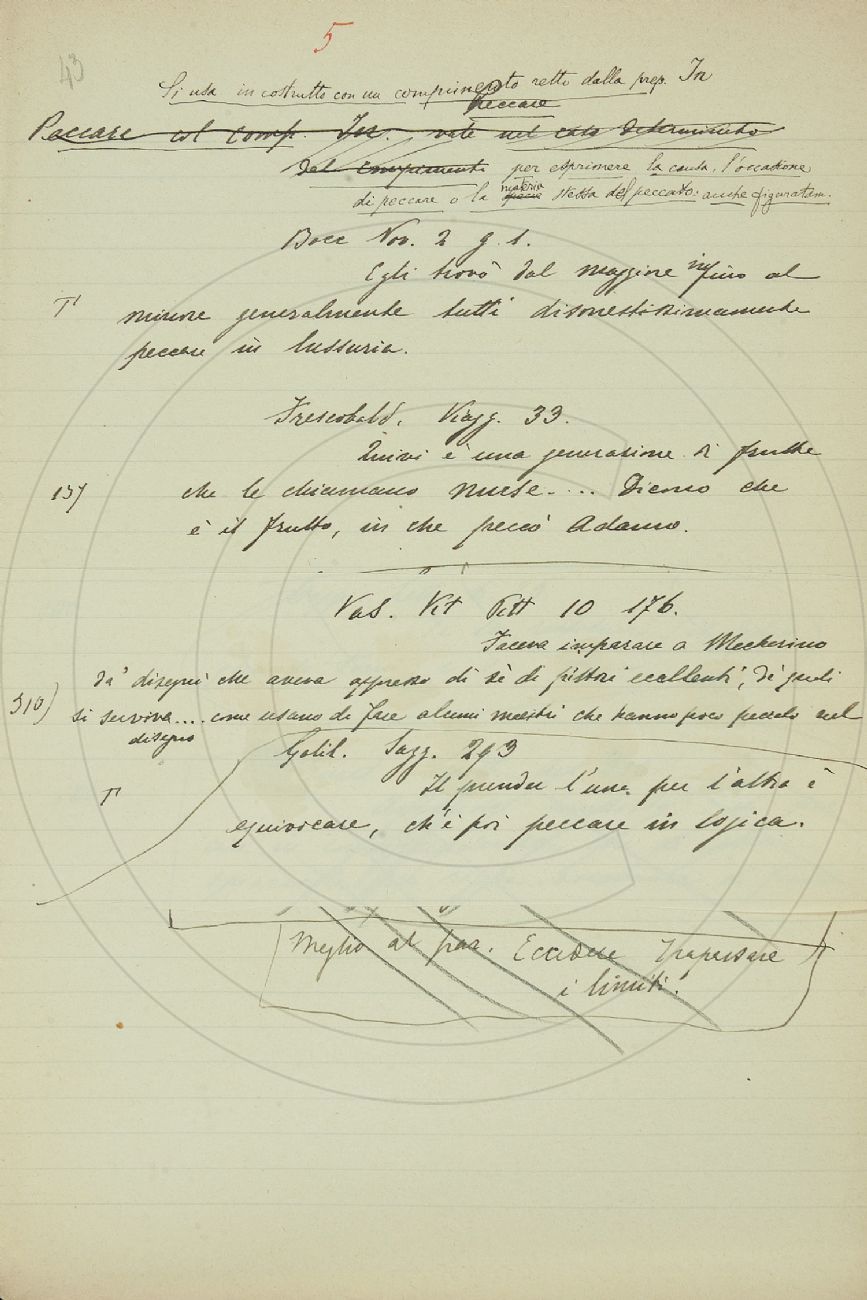 5
43
Si usa in costrutto con un compimento retto dalla prep. In
Peccare
Peccare col comp. In. vale nel caso determinato
del compimento per esprimere la causa, l'occasione
di peccare o la materia stessa del peccato: anche figuratam.
Bocc Nov. 2 g. 1.
Egli trovò dal maggiore infino al
T' minore generalmente tutti disonestissimamente
peccare in lussuria.
Frescobald. Viagg. 33.
Quivi è una generazione di frutte
137 che le chiamano muese.... Dicono che
è il frutto, in che peccò Adamo.
Vas. Vit Pitt 10 176.
Faceva imparare a Mecherino
da' disegni che aveva appresso di sè di pittori eccellenti, de' quali
310) si serviva.... come usano di fare alcuni maestri che hanno poco peccato nel
disegno
Galil. Sagg. 293
Il prender l'una per l'altra è
T' equivocare, ch'è poi peccare in logica.
Meglio al par. Eccedere Trapassare
i limiti.